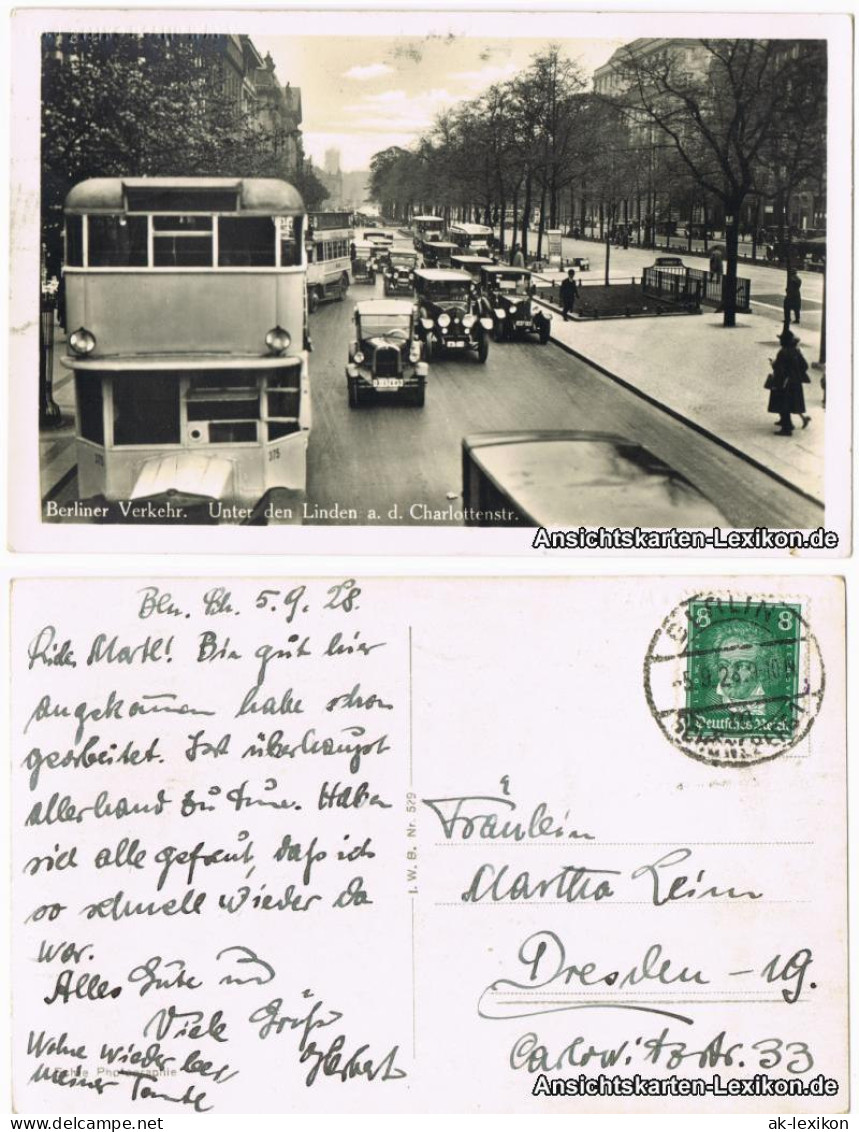 375
375
Berliner Verkehr. Unter den Linden a. d. Charlottenstr.
Ansichtskarten-Lexikon.de
Bln. 5.9.28.
Martl! Bin gut hier
angekommen habe schon
gearbeitet. Ist überhaupt
allerhand zu tun. Haben
sich alle gefreut, daß ich
so schnell wieder da
war.
Alles Gute und
Viele Grüße
Herbert
Wohne wieder bei
meiner Tante
Echte Photographie
I. W. B. Nr. 529
BERLIN
8 8
Deutsches Reich
Fräulein
Martha Leim
Dresden - 19.
Carlowitzstr. 33
Ansichtskarten-Lexikon.de
ak-lexikon